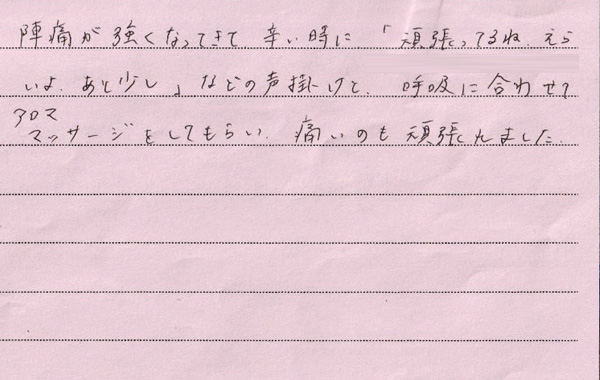 陣痛が強くなってきて辛い時に「頑張ってるね、えら
いよ、あと少し」などの声掛けと、呼吸に合わせて
アロマ
マッサージをしてもらい、痛いのも頑張れました。